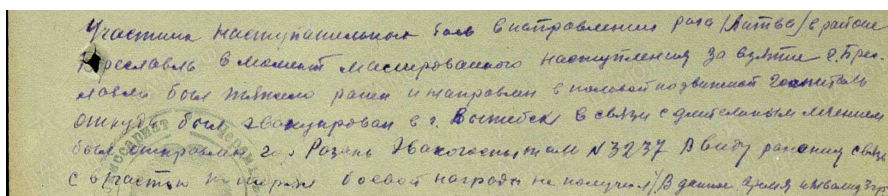 Участник наступательного боя в направлении рога (Литва) в районе
Бреславль в момент массированного наступления за взятие г. Брес-
лавля был тяжело ранен и направлен в полевой подвижной госпиталь
откуда был эвакуирован в г. Витебск в связи с длительным лечением
был отправлен г. Рязань Эвакогоспиталь N 3237 Ввиду ранения связь
с частью потерял боевой награды не получил. В данное время инвалид 3 гр